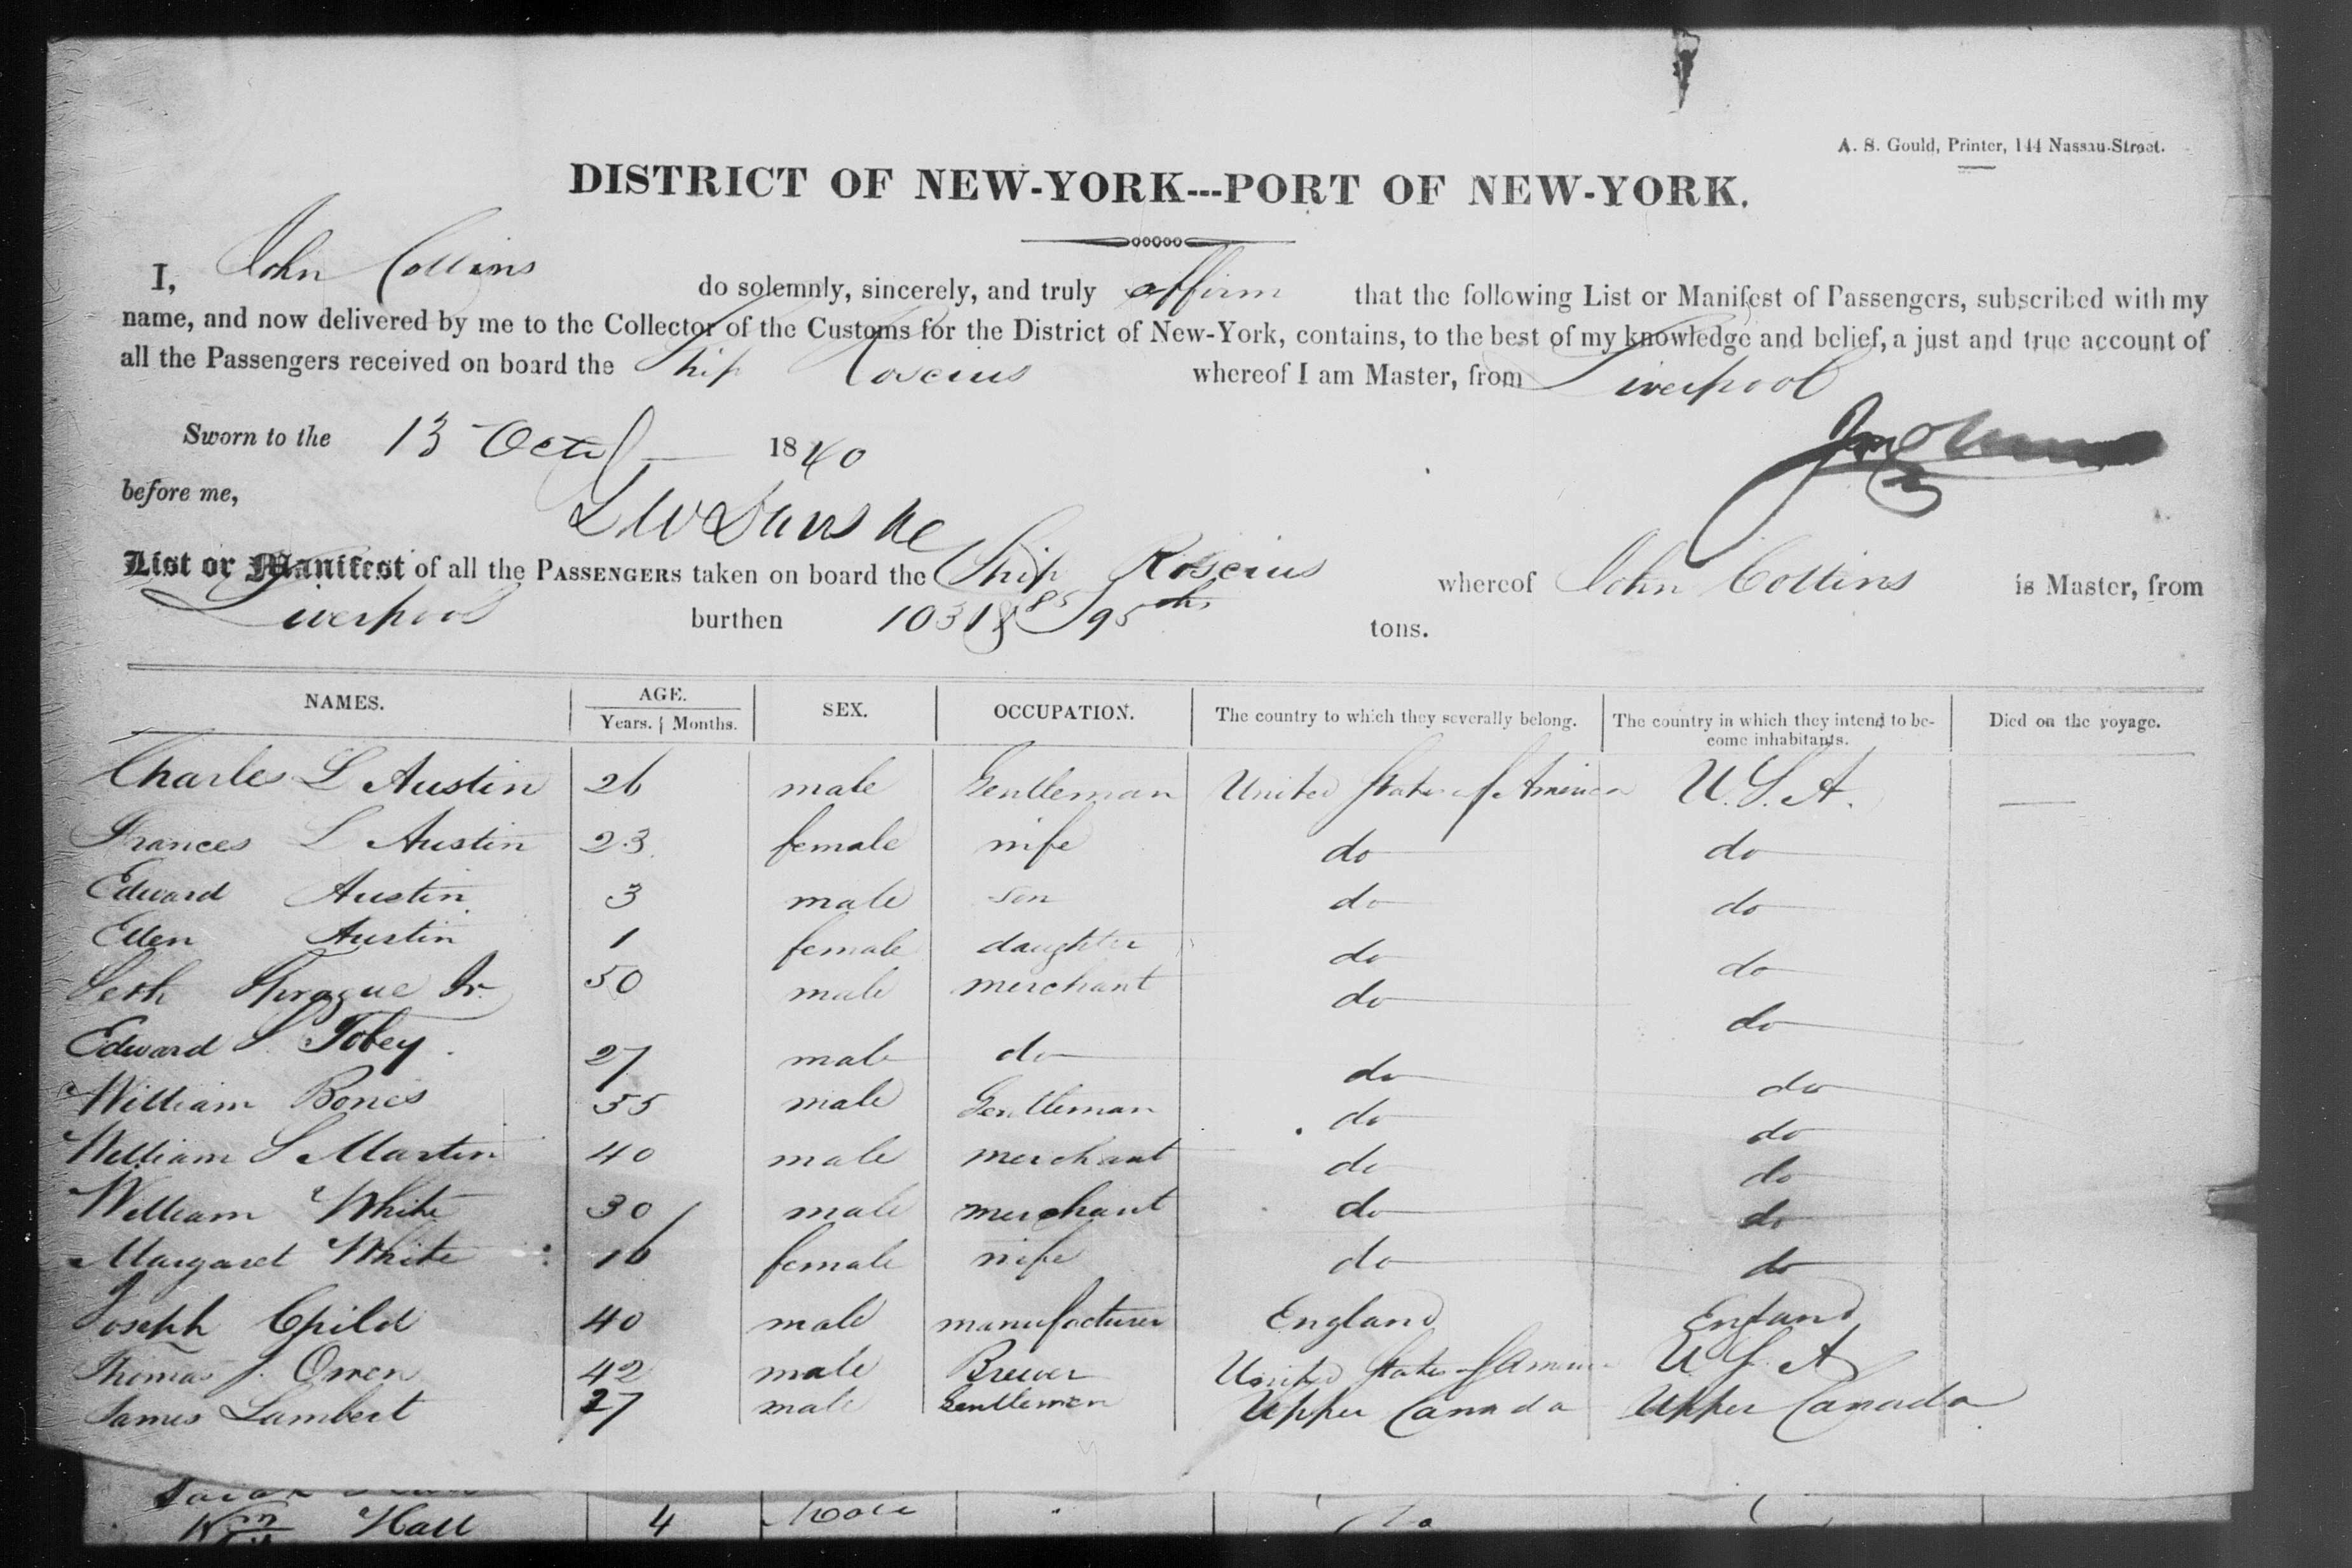 A. S. Gould, Printer, 144 Nassau-Street.
DISTRICT OF NEW-YORK---PORT OF NEW-YORK.
I, John Collins do solemnly, sincerely, and truly affirm that the following List or Manifest of Passengers, subscribed with my
name, and now delivered by me to the Collector of the Customs for the District of New-York, contains, to the best of my knowledge and belief, a just and true account of
all the Passengers received on board the Ship Roscius whereof I am Master, from Liverpool
Sworn to the 13 Octr 1840
before me,
List or Manifest of all the PASSENGERS taken on board the Ship Roscius whereof John Collins is Master, from
Liverpool burthen 1031 85/95ths tons.
NAMES. AGE. SEX. OCCUPATION. The country to which they severally belong. The country in which they intend to be- Died on the voyage.
Years. Months. come inhabitants.
Charles L Austin 26 male Gentleman United States of America U.S.A. —
Frances L Austin 23 female wife do do
Edward Austin 3 male son do do
Ellen Austin 1 female daughter do do
Seth Sprague Jr. 50 male merchant do do
Edward S. Tobey. 27 male do do do
William Bones 55 male Gentleman do do
William S Martin 40 male merchant do do
William White 30 male merchant do do
Margaret White 16 female wife do do
Joseph Child 40 male manufacturer England England
Thomas J. Owen 42 male Brewer United States of America U.S.A
James Lambert 27 male Gentleman Upper Canada Upper Canada
Sarah
Wm Hall 4 do